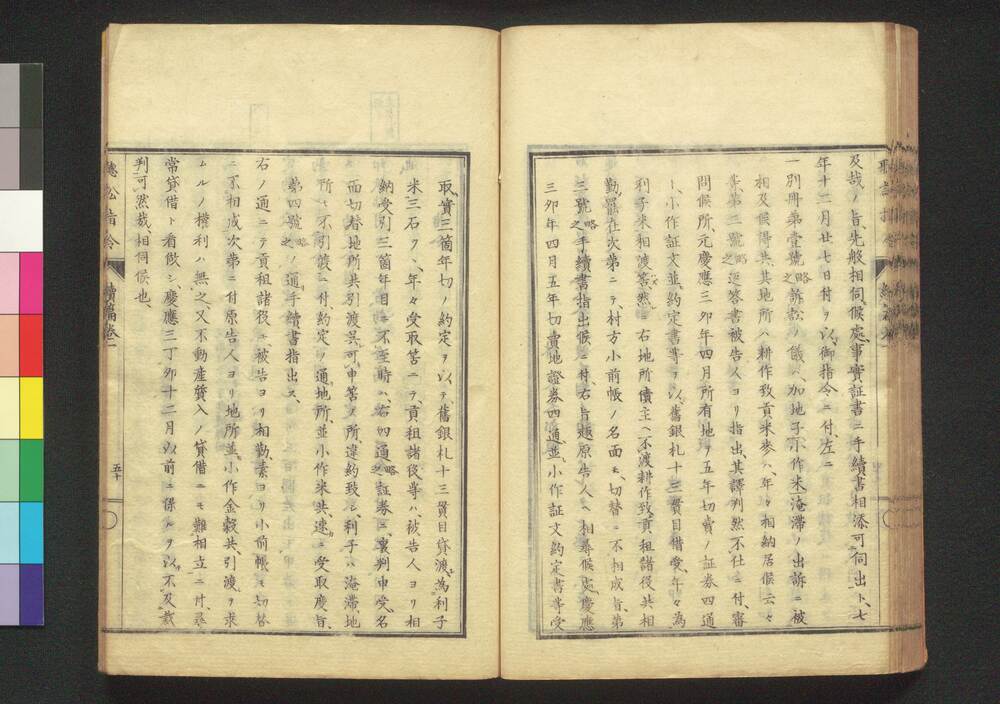 及哉ノ旨、先般相伺候處、事實証書ニ手續書相添可伺出ト、七
年十二月廿七日付ヲ以、御指令ニ付、左ニ
一別冊第壹號略之訴訟ノ儀ハ、加地子小作米淹滞ノ出訴ニ被
相及候得共、其地所ハ耕作致貢米麥ハ、年々相納居候云々
第二號略之返答書被告人ヨリ指出、其譯判然不仕ニ付、審
問候所、元慶應三夘年四月所有地ヲ五年切賣ノ証券四通
ト、小作証文並約定書等ヲ以、舊銀札十三貫目借受、年々為
利子米相渡、然ニ右地所債主ヘ不渡耕作致、貢租諸役共相
勤罷在次第ニテ、村方小前帳ノ名面モ、切替ニ不相成旨、第
三號略之手續書指出候ニ付、右旨趣原告人ヘ相尋候處、慶應
三夘年四月五年切賣地證券四通並小作証文約定書等受
取、實三箇年切ノ約定ヲ以テ、舊銀札十三貫目貸渡、為利子
米三石ヅヽ、年々受取筈ニテ、貢租諸役等ハ、被告人ヨリ相
納、受引三箇年目ニ不至時ハ、右四通略之証券ニ裏判申受、名
面切替地所共引渡呉可申筈ノ所、違約致シ、利子ハ淹滞、地
所ハモ不引渡ニ付、約定ノ通地所並小作米共、速ニ受取度旨、
第四號略之ノ通手續書指出ス、
右ノ通ニテ貢租諸役ハ、被告ヨリ相勤、素ヨリ小前帳モ切替
ニ不相成次第ニ付、原告人ヨリ地所並小作金穀共、引渡ヲ求
ムルノ權利ハ無之、又不動産質入ノ貸借ニモ難相立ニ付、尋
常貸借ト看做シ、慶應三丁夘十二月以前ニ係ルヲ以、不及裁
判可然哉、相伺候也、
聽訟指令
續篇卷二
五十